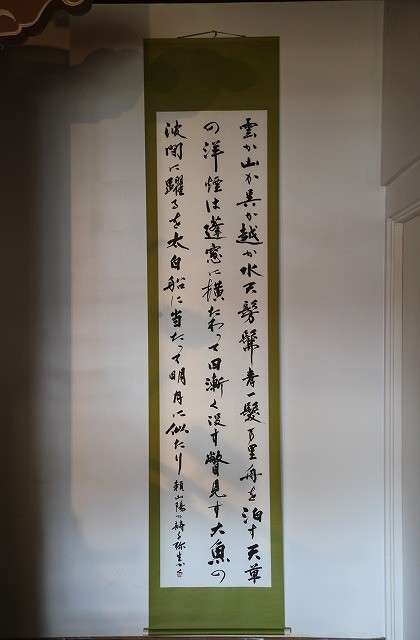 雲か山か呉か越か水天髣髴青一髪万里舟を泊す天草
の洋煙は蓬窓に横たわって日漸く没す瞥見す大魚の
波間に躍るを太白船に当たって明月に似たり
頼山陽の詩